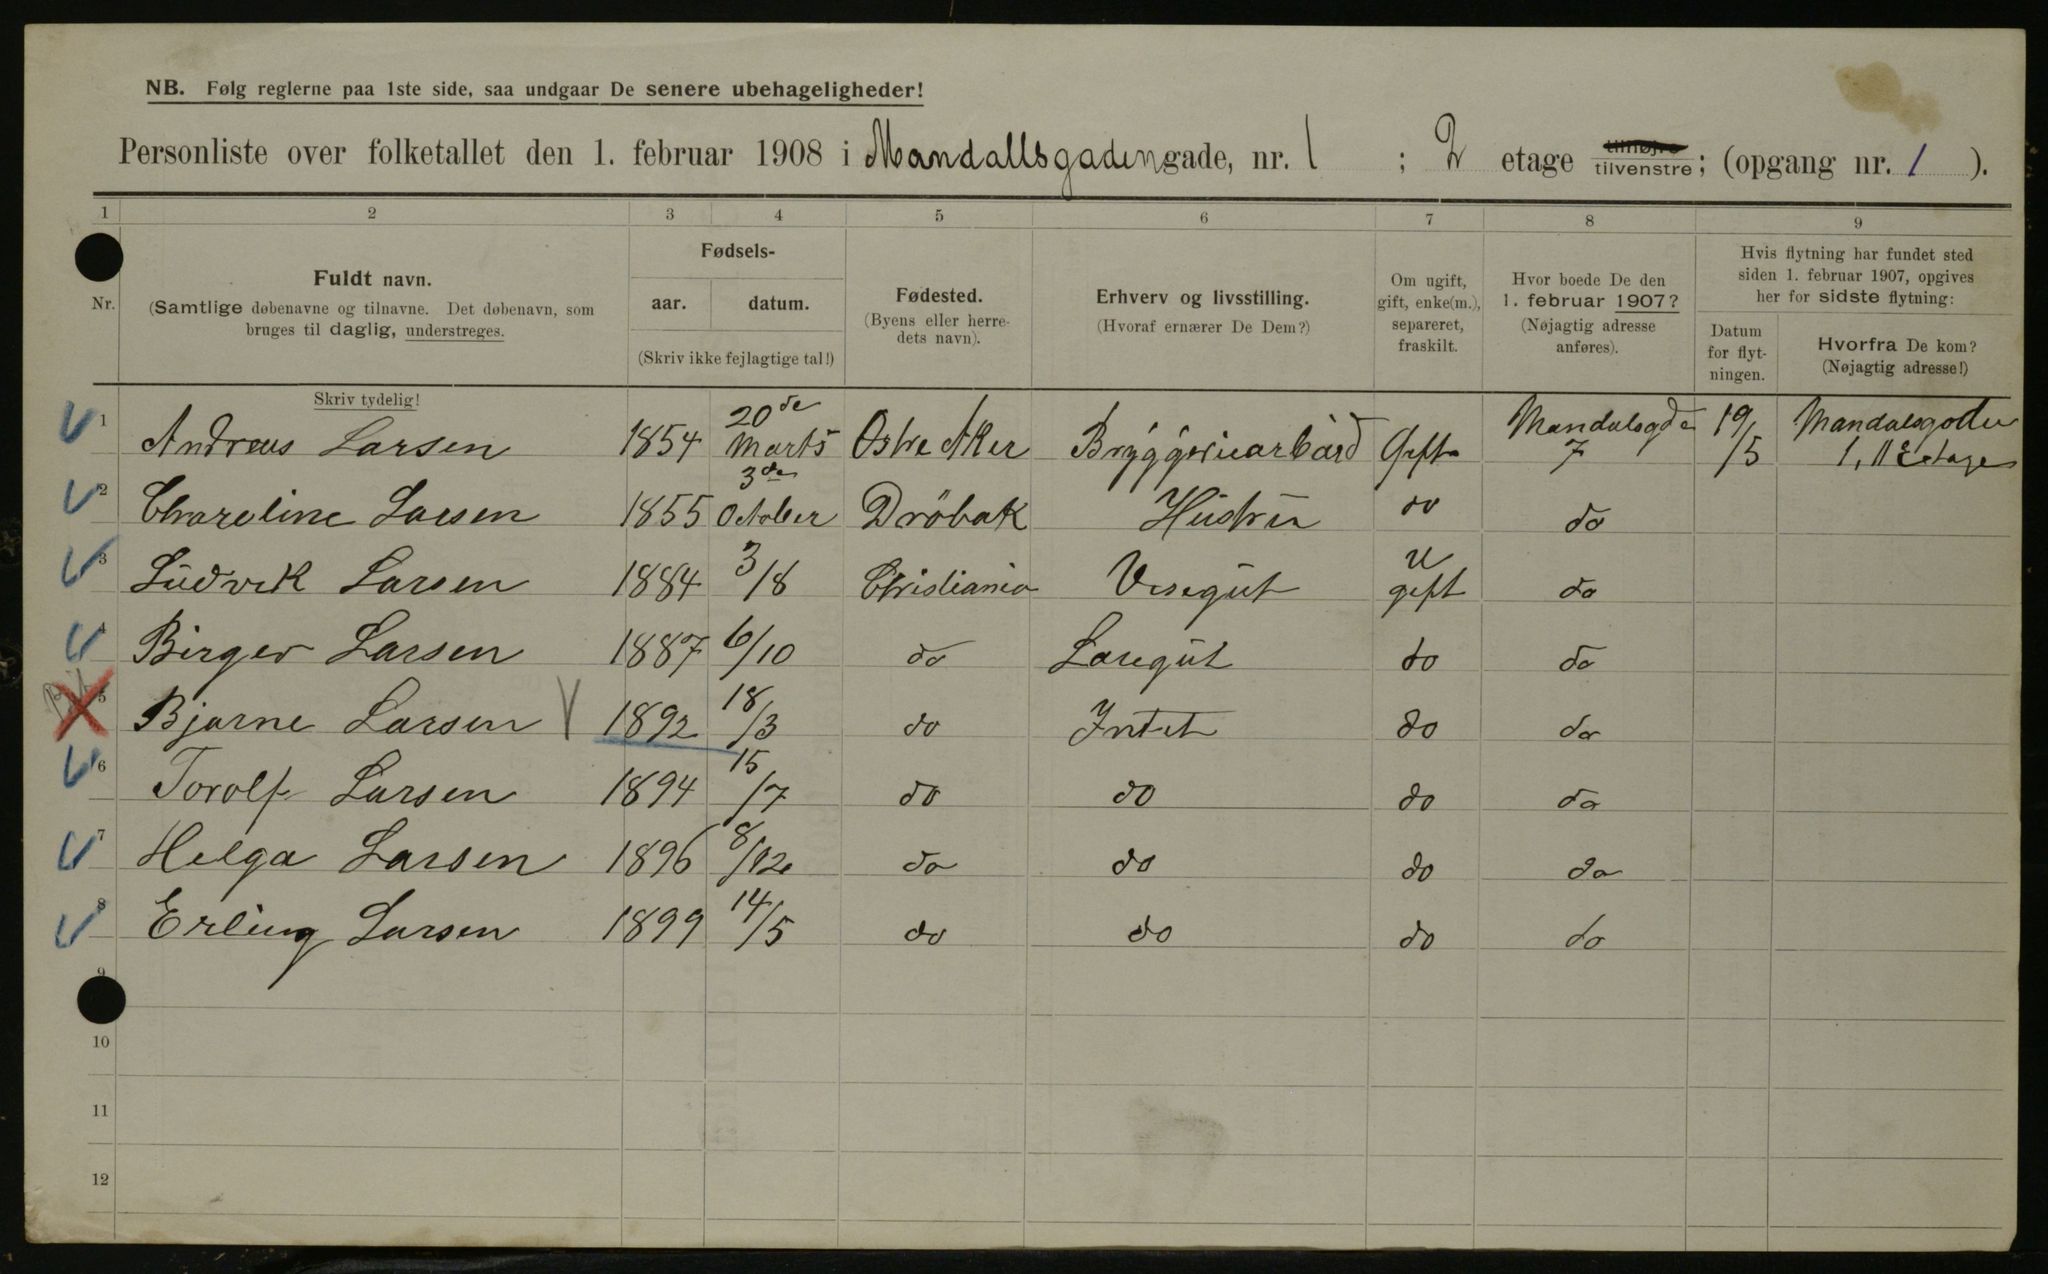 NB. Følg reglerne paa 1ste side, saa undgaar De senere ubehageligheder!
Personliste over folketallet den 1. februar 1908 i Mandallsgadengade, nr. 1 ; 2 etage tilhøjre tilvenstre; (opgang nr. 1 ).
1 2 3 4 5 6 7 8 9
Nr.
Fuldt navn.
(Samtlige døbenavne og tilnavne. Det døbenavn, som
bruges til daglig, understreges.
Skriv tydelig!
Fødsels-
aar. datum.
(Skriv ikke fejlagtige tal!)
Fødested.
(Byens eller herre-
dets navn).
Erhverv og livsstilling.
(Hvoraf ernærer De Dem?)
Om ugift,
gift, enke(m.),
separeret,
fraskilt.
Hvor boede De den
1. februar 1907?
(Nøjagtig adresse
anføres).
Hvis flytning har fundet sted
siden 1. februar 1907, opgives
her for sidste flytning:
Datum
for flyt-
ningen.
Hvorfra De kom?
(Nøjagtig adresse!)
1 Andreas Larsen 1854 20de Marts Østre Aker Bryggeriearbard Gift Mandalsgde 7 19/5 Mandalsgaden 1, II Etage
2 Charoline Larsen 1855 3de October Drøbak Hustru do do
3 Ludvik Larsen 1884 3/8 Christiania Visegut U geft do
4 Birger Larsen 1887 6/10 do do do
5 Bjarne Larsen V 1892 18/3 do Intet do do
6 Torolf Larsen 1894 15/7 do do do do
7 Helga Larsen 1896 8/12 do do do do
8 Erling Larsen 1899 14/5 do do do do
9
10
11
12